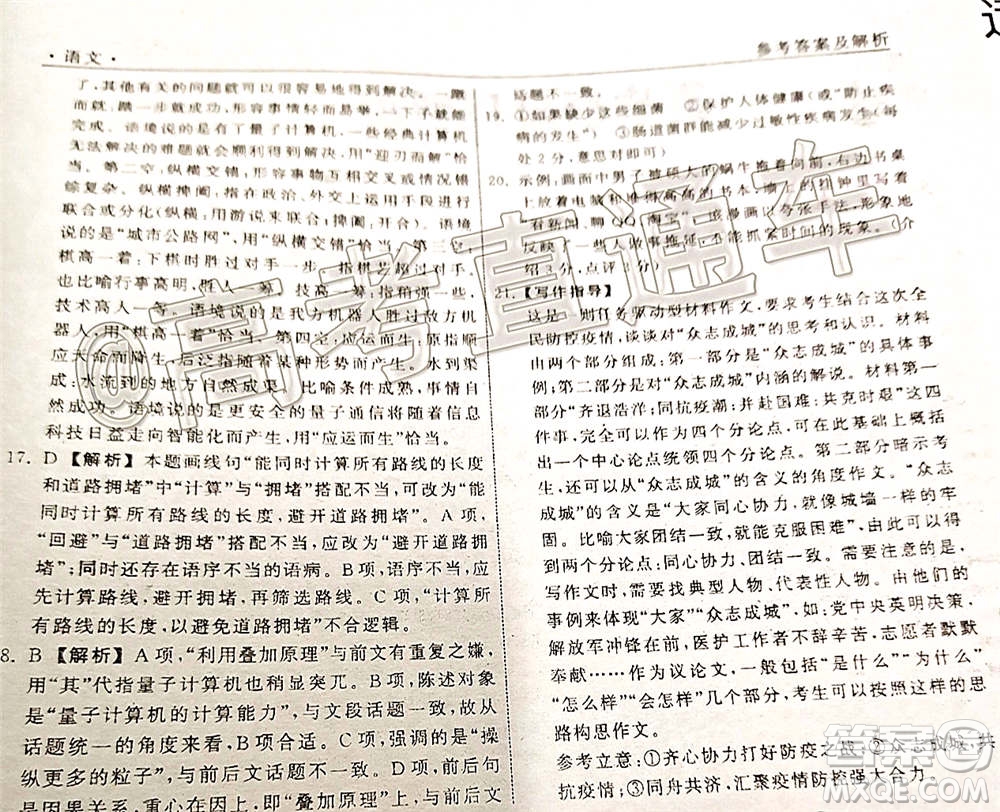 ·语文·
参考答案及解析
了,其他有关的问题就可以很容易地得到解决。一蹴
而就:踏一步就成功,形容事情轻而易举,一下子就能
完成。语境说的是有了量子计算机,一些经典计算机
无法解决的难题就会顺利得到解决,用“迎刃而解”恰
当。第二空,纵横交错,形容事物互相交叉或情况错
综复杂。纵横捭阖:指在政治、外交上运用手段进行
联合或分化(纵横:用游说来联合;捭阖:开合)。语境
说的是“城市公路网”,用“纵横交错”恰当。第三空,
棋高一着:下棋时胜过对手。指棋艺或计谋高过对手。
也比喻行事高明。
技术高人一等。语境说的是我方机器人胜过对方机
器人,用“棋高一着”恰当。第四空,应运而生:原指
应天命而产生。后泛指随着某种形势而产生。水到渠
成:水流到的地方自然成渠。比喻条件成熟,事情自
然成功。语境说的是更安全的量子通信将伴随信息
科技日益走向智能化而产生,用“应运而生”恰当。
17. D 【解析】本题画线句“能同时计算所有路线的长度
和道路拥堵”中“计算”与“拥堵”搭配不当,可改为“能
同时计算所有路线的长度,避开道路拥堵”。A项,
“回避”与“道路拥堵”搭配不当,应改为“避开道路拥
堵”;同时还存在语序不当的语病。B项,语序不当,应
先计算路线,避开拥堵,再筛选路线。C项,“计算所
有路线的长度,以避免道路拥堵”不合逻辑。
8. B 【解析】A项,“利用叠加原理”与前文有重复之嫌,
用“其”代指量子计算机也稍显突兀。B项,陈述对象
是“量子计算机的计算能力”,与下文话题一致,从前
后统一的角度来看,B项合适。C项,强调的是“操
纵更多的粒子”,与前后文话题不一致。D项,前后句
是因果关系,
话题不一致。
19. ①如果缺少这些细菌 ②保护人体健康(或“防止疾
病的发生”) ③肠道菌群能减少过敏性疾病发生(每
处2分,意思对即可)
20. 示例:画面中男子被硕大的蜗牛拖着向前,右边书桌
上放着电脑和
看新闻、聊QQ、淘宝”。漫画以夸张手法,形象地
反映了一些人做事拖延、不能抓紧时间的现象。(介
绍3分,点评3分)
21. 【写作指导】
这是一则任务驱动型材料作文,要求考生结合这次人
民防控疫情,谈谈对“众志成城”的思考和认识。材料
由两个部分组成:第一部分是“众志成城”的具体事
例;第二部分是对“众志成城”内涵的解说。材料第一
部分“齐退浩洋;同抗疫潮;并赴国难;共克时艰”这四
个事例可以提炼为四个分论点,在此基础上概括
出一个中心论点统领四个分论点。第二部分暗示考
生,可以从“众志成城”的含义的角度作文。“众志
成城”的含义是“大家同心协力,就像城墙一样的牢
固。比喻大家团结一致,就能克服困难”,由此可以概
括为两个分论点:同心协力、团结一致。需要注意的是,
写作文时,一定要找典型人物、代表性人物。用他们的
事例来体现“大家”“众志成城”,如:党中央英明决策,
解放军冲锋在前,医护工作者不辞辛苦,志愿者默默
奉献……作为议论文,一般包括“是什么”“为什么”
“怎么样”“会怎样”几个部分,考生可以按这样的思
路构思作文。
参考立意:①齐心协力打好防疫之战;②众志成城,共
抗疫情;③同舟共济,汇聚疫情防控强大合力。
@高考直通车